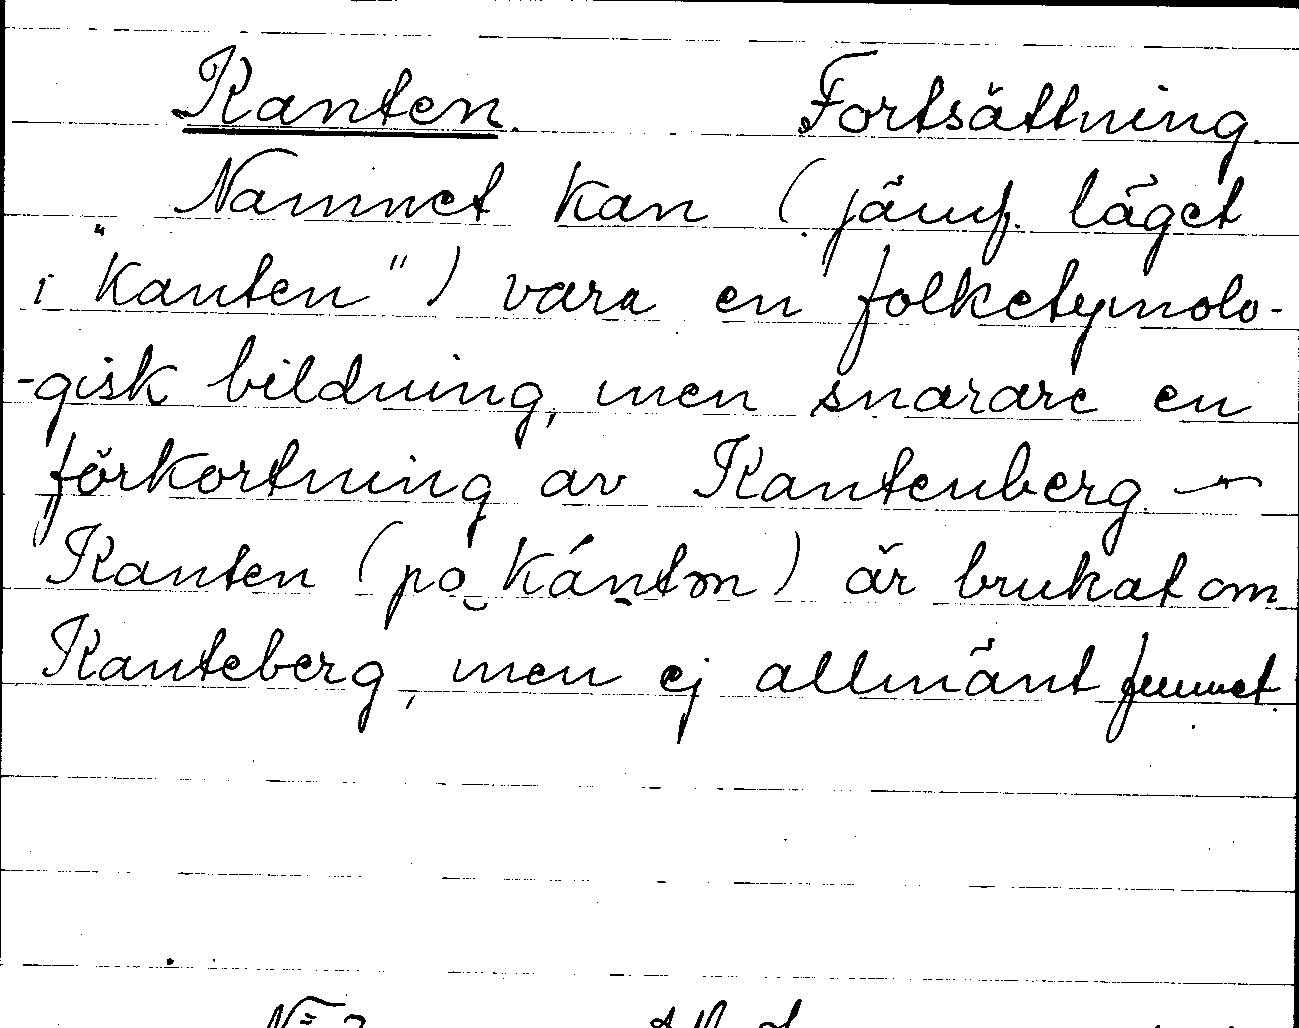 Kanten. Fortsättning.
Namnet kan (jämf. läget
i "kanten") vara en folketymolo-
-gisk bildning, men snarare en
förkortning av Kantenberg. —
Kanten (po kántən) är brukat om
Kanteberg, men ej allmänt